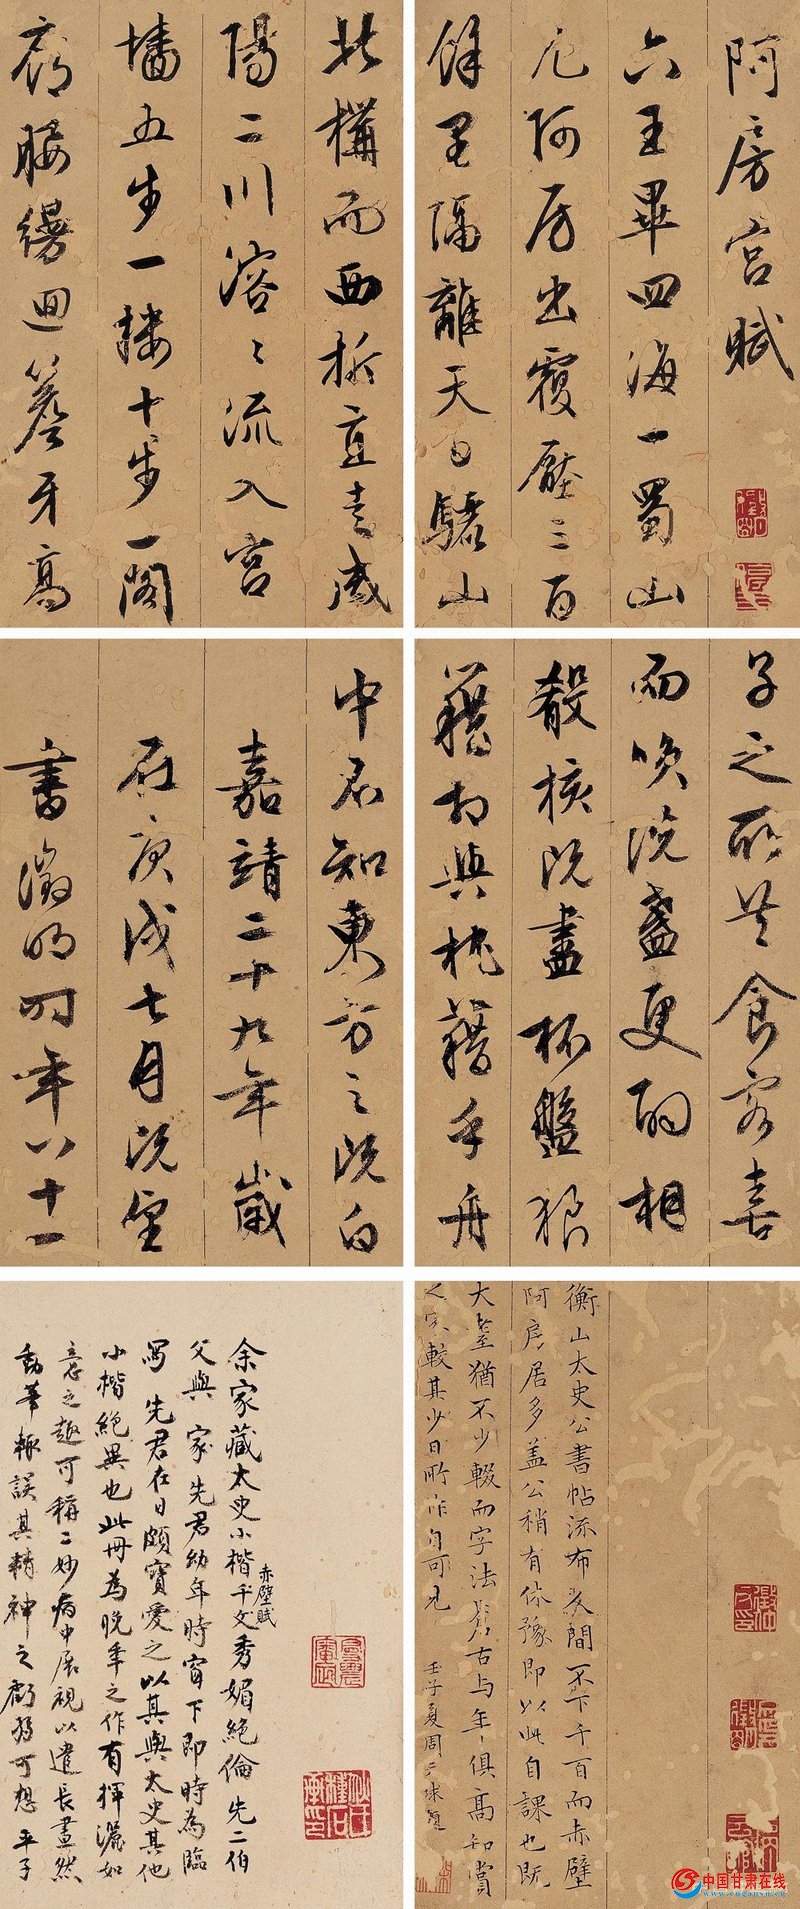 阿房宫賦
六王畢四海一蜀山
兀阿房出覆壓三百
餘里隔離天日驪山
北構而西折直走咸
陽二川溶〻流入宫
墻五步一楼十步一閣
廊腰縵迴簷牙高
子之所共食客喜
而咲洗盞更酌相
殽核既盡杯盤狼
藉相與枕藉乎舟
中不知東方之既白
嘉靖二十九年歲
在庚戌七月既望
書徵明時年八十一
衡山太史公書帖流布人間不下千百而赤壁
阿房居多盖公稍有休豫即以此自課也既
大耋猶不少輟而字法蒼古与年俱高知賞
之家較其少日所作自可見
壬子夏周天球題
余家藏太史小楷千文赤壁賦秀媚絶倫先二伯
父與家先君幼年時窗下即時為臨
寫先君在日頗寶愛之以其與太史其他
小楷絶異也此冊為晚年之作有揮灑如
意之趣可稱二妙病中展視以遣長晝然
動筆輙誤其精神之可想平子
中国甘肃在线
www.cngansu.cn